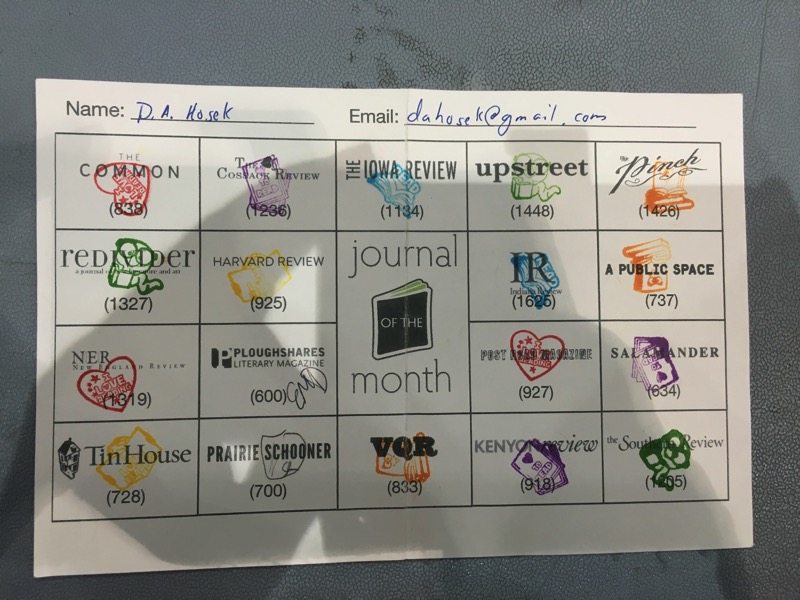 Name: D.A. Hosek Email: dahosek@gmail.com
THE COMMON
(838)
The Cossack Review
(1236)
THE IOWA REVIEW
(1134)
upstreet
(1448)
the Pinch
(1426)
redivider
a journal of new literature and art
(1327)
HARVARD REVIEW
(925)
journal
OF THE
month
IR
Indiana Review
(1625)
A PUBLIC SPACE
(737)
NER
New England Review
(1319)
PLOUGHSHARES
LITERARY MAGAZINE
(600)
POST ROAD MAGAZINE
(927)
SALAMANDER
(634)
TinHouse
(728)
PRAIRIE SCHOONER
(700)
VQR
(833)
KENYON review
(918)
the Southern Review
(1205)